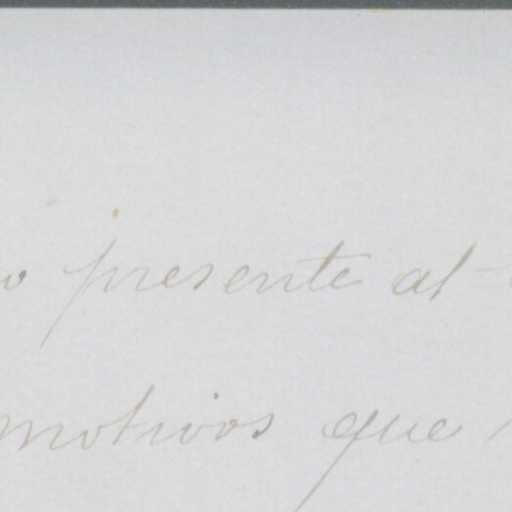 presente al
motivos que